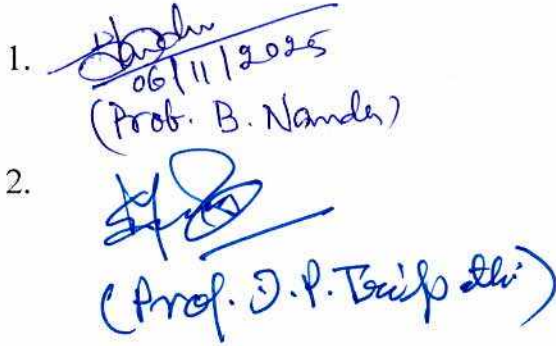 1.
06/11/2025
(Prof. B. Nanda)
2.
(Prof. D. P. Tripathi)